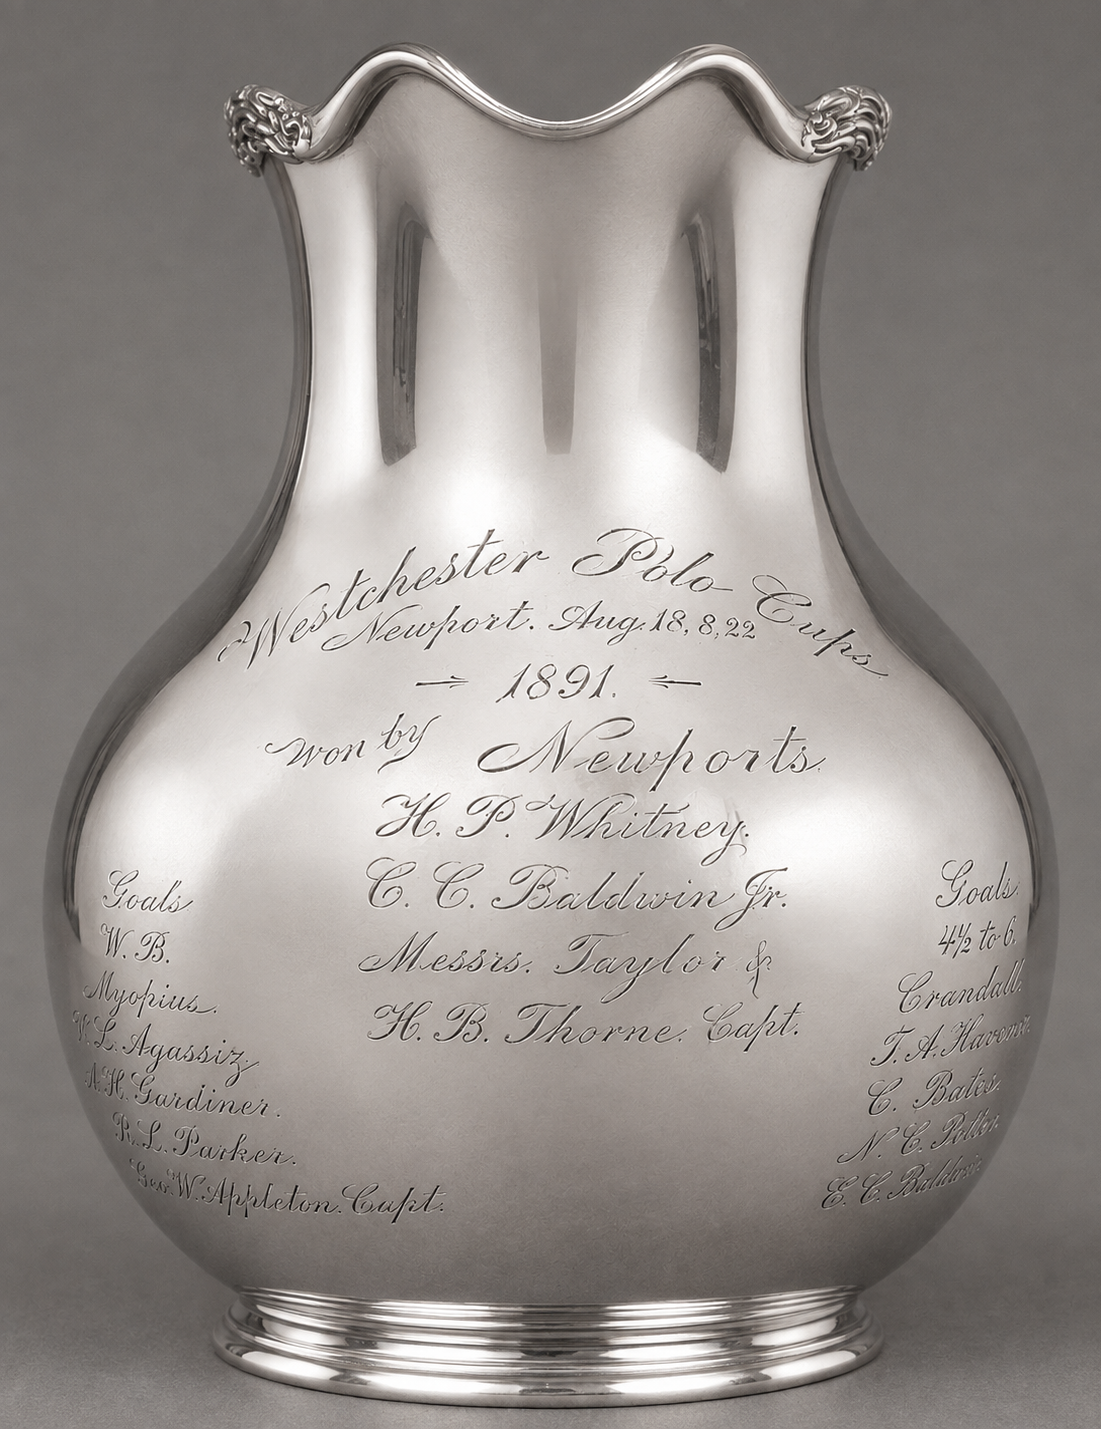 Westchester Polo Cups
Newport. Aug. 18, 8, 22
1891.
Won by Newports.
H. P. Whitney.
C. C. Baldwin Jr.
Messrs. Taylor &
H. B. Thorne. Capt.
Goals
W. B.
Myopius.
L. Agassiz
H. Gardiner.
R. L. Parker.
Geo. W. Appleton. Capt.
Goals.
4½ to 6.
Crandall.
T. A.
C. Bates.
N. C.
E. C.